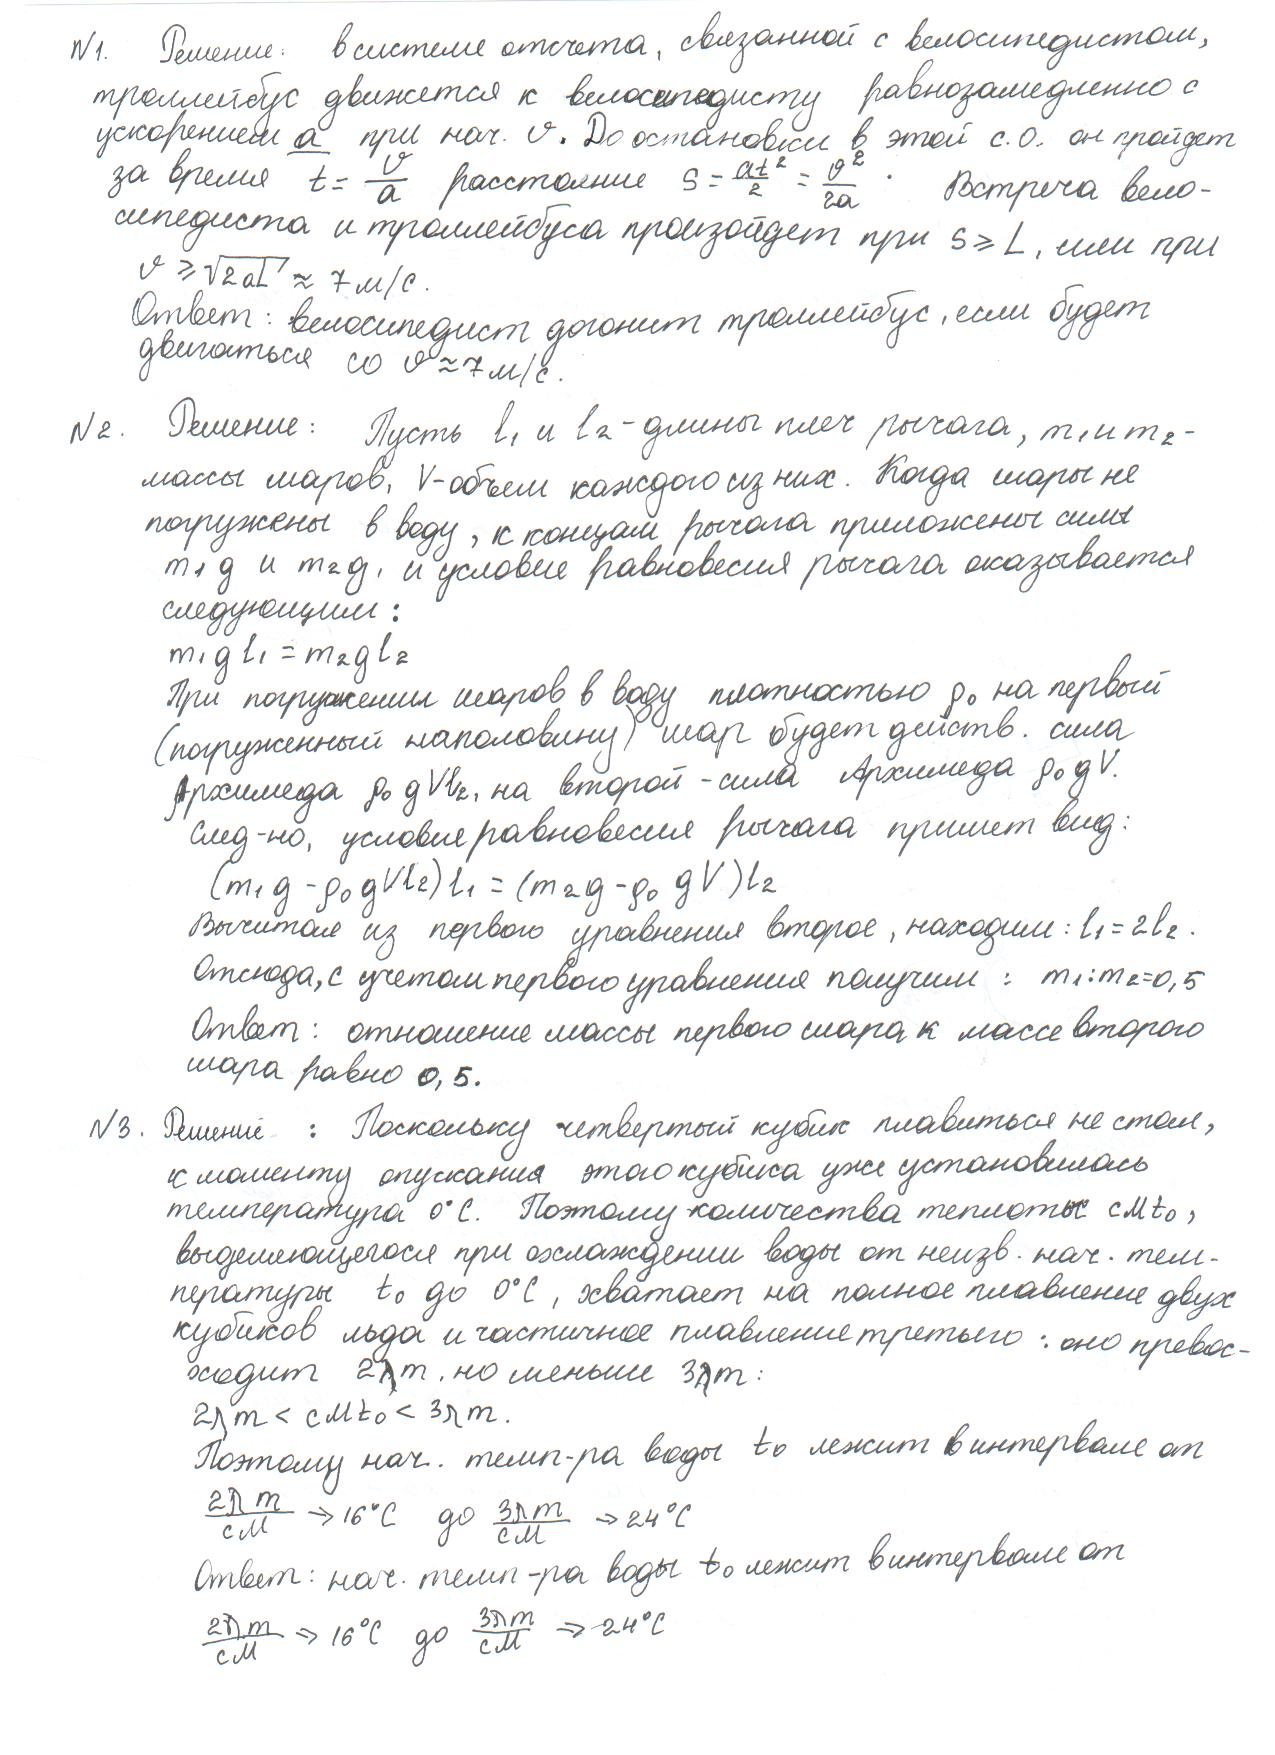 N1. Решение: в системе отсчета, связанной с велосипедистом,
троллейбус движется к велосипедисту равнозамедленно с
ускорением a при нач. v. До остановки в этой с.о. он пройдет
за время t = v/a расстояние s = at²/2 = v²/2a. Встреча вело-
сипедиста и троллейбуса произойдет при s ⩾ L, или при
v ⩾ √2aL ≈ 7 м/с.
Ответ: велосипедист догонит троллейбус, если будет
двигаться со v ≈ 7 м/с.
N2. Решение: Пусть l₁ и l₂ - длины плеч рычага, m₁ и m₂ -
массы шаров, V - объем каждого из них. Когда шары не
погружены в воду, к концам рычага приложены силы
m₁g и m₂g, и условие равновесия рычага оказывается
следующим:
m₁gl₁ = m₂gl₂
При погружении шаров в воду плотностью ρ₀ на первый
(погруженный наполовину) шар будет действ. сила
Архимеда ρ₀gVl₂, на второй - сила Архимеда ρ₀gV.
След-но, условие равновесия рычага примет вид:
(m₁g - ρ₀gVl₂)l₁ = (m₂g - ρ₀gV)l₂
Вычитая из первого уравнения второе, находим: l₁ = 2l₂.
Отсюда, с учетом первого уравнения получим: m₁:m₂ = 0,5
Ответ: отношение массы первого шара к массе второго
шара равно 0,5.
N3. Решение: Поскольку четвертый кубик плавиться не стал,
к моменту опускания этого кубика уже установилась
температура 0°C. Поэтому количества теплоты cMt₀,
выделяющегося при охлаждении воды от неизв. нач. тем-
пературы t₀ до 0°C, хватает на полное плавление двух
кубиков льда и частичное плавление третьего: оно превос-
ходит 2λm, но меньше 3λm:
2λm < cMt₀ < 3λm.
Поэтому нач. темп-ра воды t₀ лежит в интервале от
2λm/cM → 16°C до 3λm/cM → 24°C
Ответ: нач. темп-ра воды t₀ лежит в интервале от
2λm/cM → 16°C до 3λm/cM → 24°C